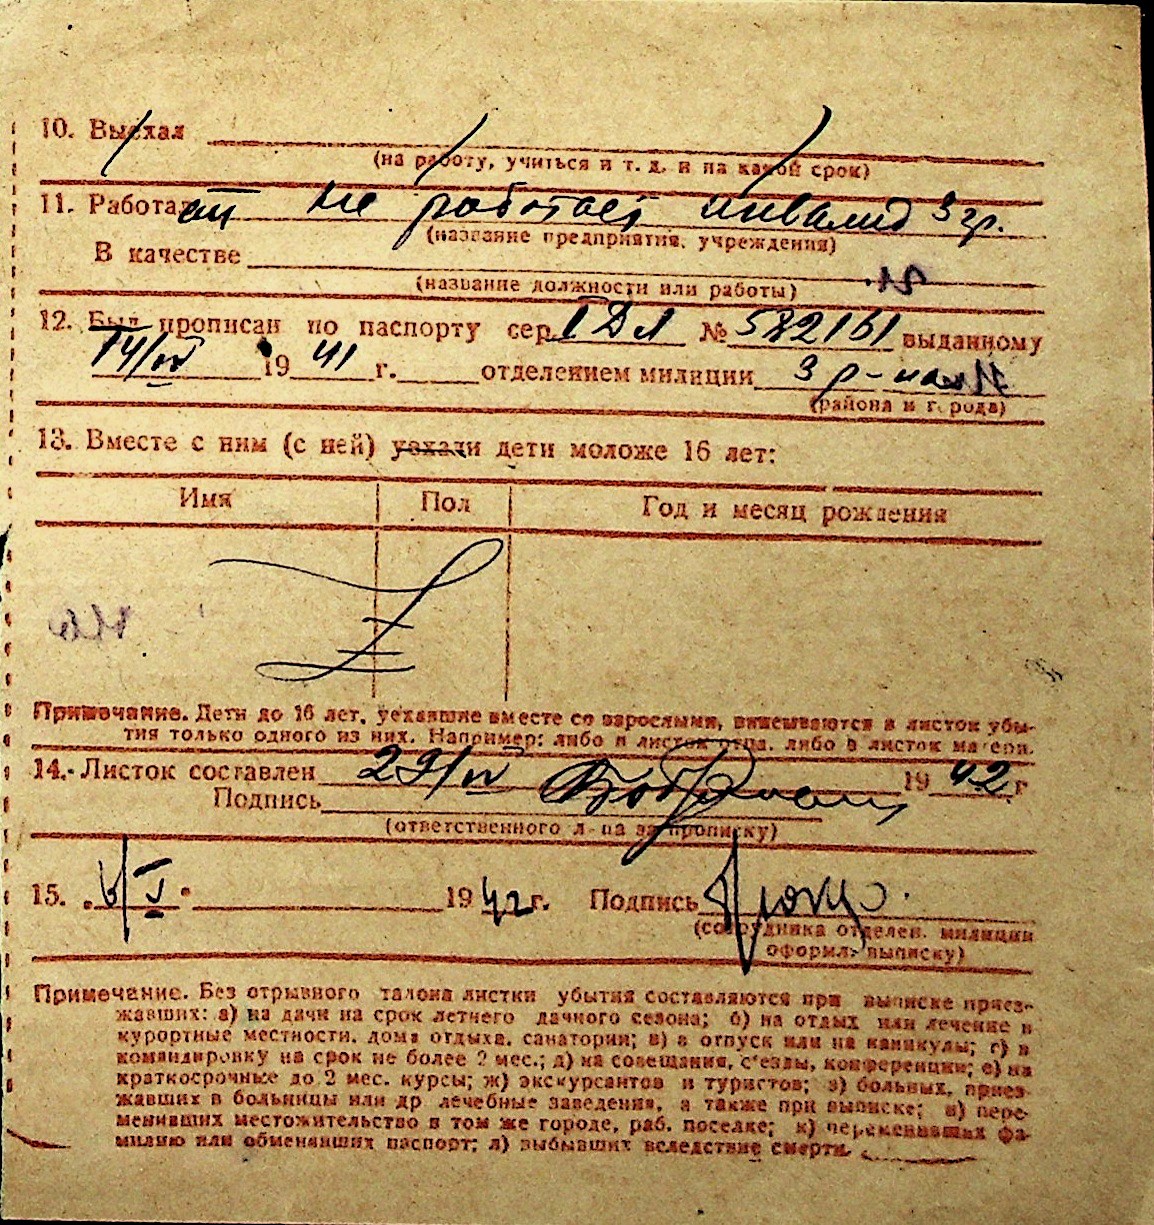 10. Выехал
(на работу, учиться и т. д. и на какой срок)
11. Работал не работает инвалид 3 гр.
(название предприятия, учреждения)
В качестве
(название должности или работы)
12. Был прописан по паспорту сер. I ДЛ № 582161 выданному
14/IV 1941 г. отделением милиции 3 р-на
(района и города)
13. Вместе с ним (с ней) уехали дети моложе 16 лет:
Имя Пол Год и месяц рождения
Примечание. Дети до 16 лет, уехавшие вместе со взрослыми, вписываются в листок убы-
тия только одного из них. Например: либо в листок отца, либо в листок матери.
14. Листок составлен 29/IV 1942 г
Подпись
(ответственного л-ца за прописку)
15. „6/V" 1942 г. Подпись
(сотрудника отделен. милиции
оформл. выписку)
Примечание. Без отрывного талона листки убытия составляются при выписке приез-
жавших: а) на дачи на срок летнего дачного сезона; б) на отдых или лечение в
курортные местности, дома отдыха, санатории; в) в отпуск или на каникулы; г) в
командировку на срок не более 2 мес.; д) на совещания, с'езды, конференции; е) на
краткосрочные до 2 мес. курсы; ж) экскурсантов и туристов; з) больных, приез-
жавших в больницы или др лечебные заведения, а также при выписке; и) пере-
менивших местожительство в том же городе, раб. поселке; к) переменивших фа-
милию или обменявших паспорт; л) выбывших вследствие смерти.